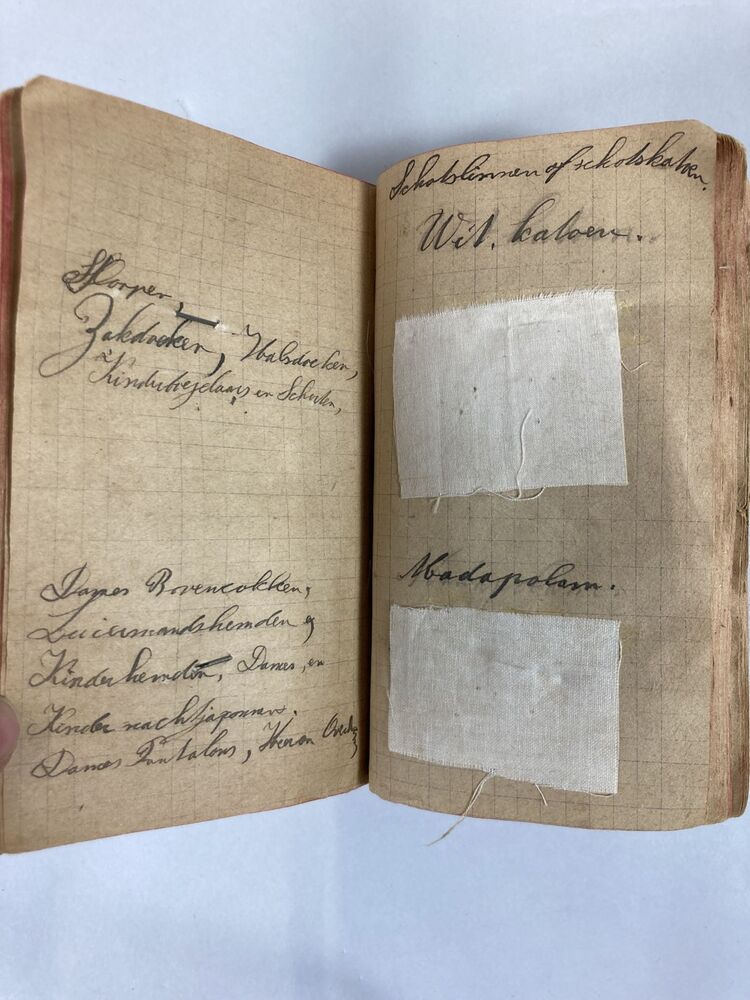 Slopen,
Zakdoeken, Halsdoeken,
Kinder en Schorten,
Dames Bovenrokken,
Luiermandshemden
Kinderhemden, Dames, en
Kinder nachtjaponnen.
Dames Pantalons, Heeren
Schotslinnen of schotskatoen.
Wit. katoen.
Madapolam.